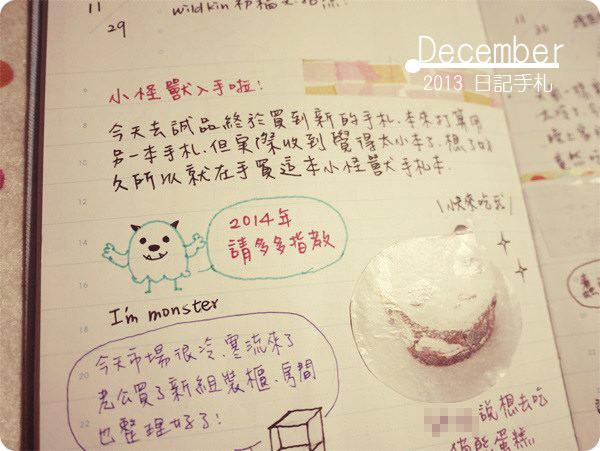 11
29
wildkin
December
2013 日記手札
小怪獸入手啦!
今天去誠品終於買到新的手札.本來打算用
另一本手札.但實際收到覺得太小本了.想了好
久所以就在手買這本小怪獸手札本.
\快來吃我/
2014年
請多多指教
I'm monster
今天市場很冷.寒流來了
老公買了新組裝櫃.房間
也整理好了!
說想去吃
蛋糕
6
8
10
12
14
16
18
20
22